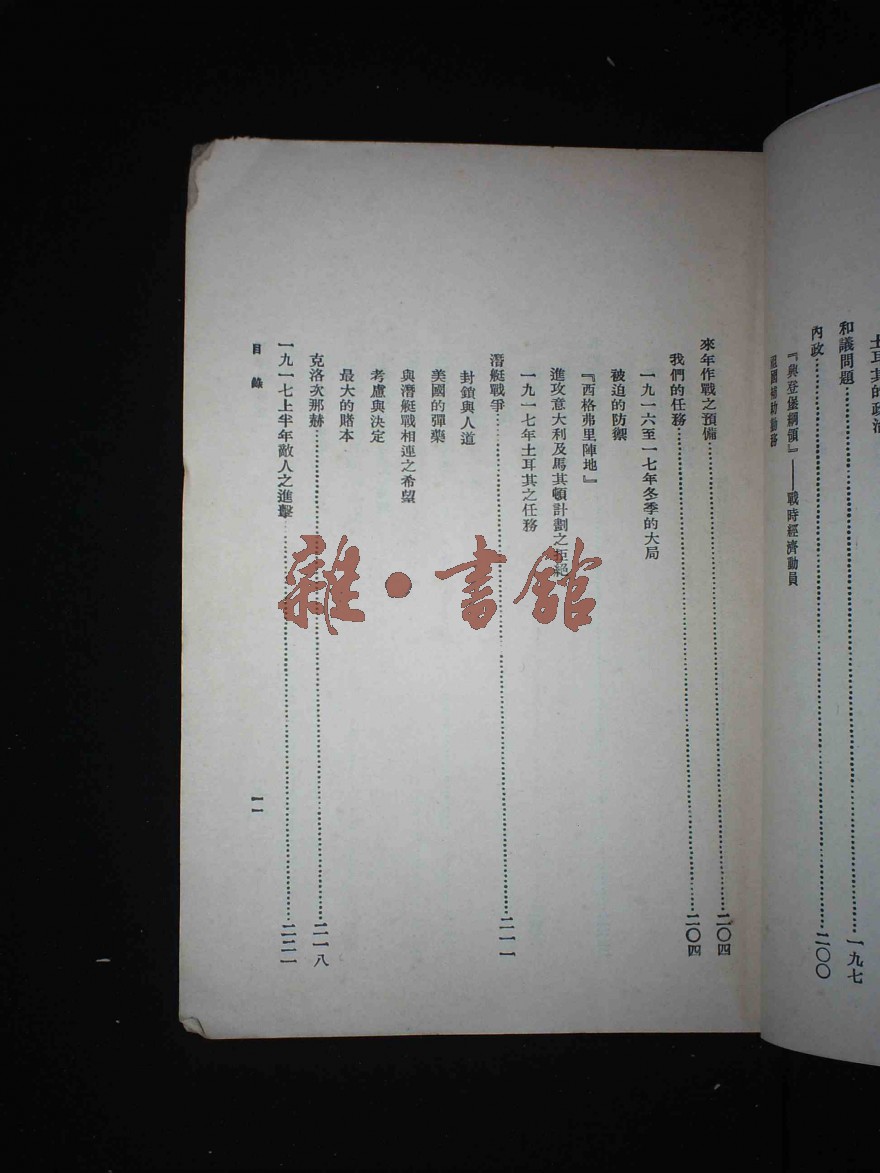 土耳其的政治
和議問題……一九七
內政……二〇〇
『興登堡綱領』——戰時經濟動員
祖國補助勤務
來年作戰之預備……二〇四
我們的任務……二〇四
一九一六至一七年冬季的大局
被迫的防禦
『西格弗里陣地』
進攻意大利及馬其頓計劃之拒絕
一九一七年土耳其之任務
潛艇戰爭……二一一
封鎖與人道
美國的彈藥
與潛艇戰相連之希望
考慮與決定
最大的賭本
克洛次那赫……二一八
一九一七上半年敵人之進擊……二二一
目錄
一一
雜·書館